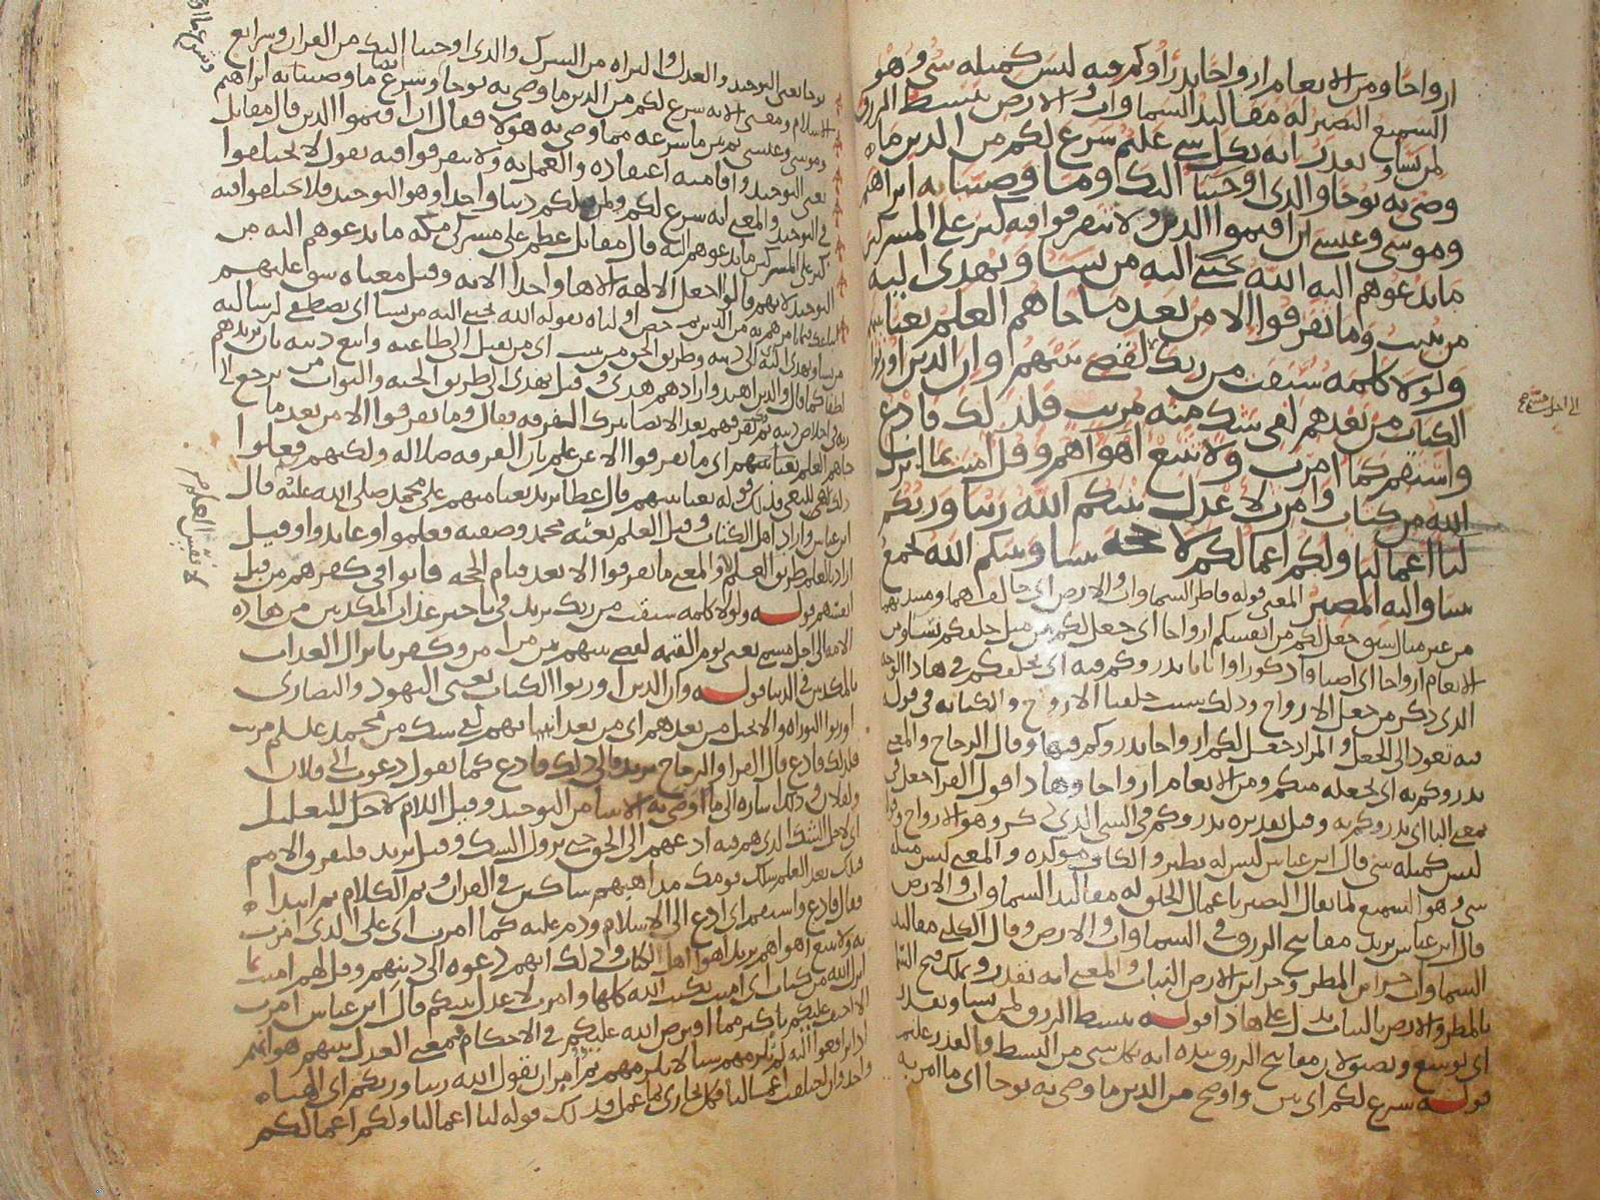 ازواجا ومن الانعام ازواجا يذروكم فيه ليس كمثله شي وهو
السميع البصير له مقاليد السماوات والارض يبسط الرزق
لمن يشا ويقدر انه بكل شي عليم شرع لكم من الدين ما
وصى به نوحا والذي اوحينا اليك وما وصينا به ابراهيم
وموسى وعيسى ان اقيموا الدين ولا تتفرقوا فيه كبر على المشركين
ما تدعوهم اليه الله يجتبي اليه من يشا ويهدي اليه
من ينيب وما تفرقوا الا من بعد ما جاهم العلم بغيا بينهم
ولولا كلمة سبقت من ربك لقضي بينهم وان الذين اورثوا
الكتاب من بعدهم لفي شك منه مريب فلذلك فادع
واستقم كما امرت ولا تتبع اهواهم وقل امنت بما انزل
الله من كتاب وامرت لاعدل بينكم الله ربنا وربكم
لنا اعمالنا ولكم اعمالكم لا حجة بيننا وبينكم الله يجمع
بيننا واليه المصير المعنى قوله فاطر السماوات والارض اي خالقهما ومبتديهما
من غير مثال سبق جعل لكم من انفسكم ازواجا اي جعل لكم من مثل خلقكم نسا ومن
الانعام ازواجا اي اصنافا ذكورا واناثا يذروكم فيه اي يخلقكم في هذا الوجه
الذي ذكر من جعل الازواج وذلك سبب خلقنا الازواج والكناية في قوله
فيه تعود الى الجعل والمراد جعل لكم ازواجا يذروكم فيها وقال الزجاج والمعنى
يذروكم به اي يجعله منكم ومن الانعام ازواجا وهذا قول الفرا جعل في
بمعنى البا اي يذروكم به وقيل تقديره يذروكم في الشي الذي ذكر وهو الازواج
ليس كمثله شي قال ابن عباس ليس له نظير والكاف موكدة والمعنى ليس مثله
شي وهو السميع لما يقال البصير باعمال الخلق له مقاليد السماوات والارض
قال ابن عباس يريد مفاتيح الرزق في السماوات والارض وقال الكلبي مقاليد
السماوات خزاين المطر وخزاين الارض النبات والمعنى انه يقدر ويملك فتح السما
بالمطر والارض بالنبات يدل على هذا قوله يبسط الرزق لمن يشا ويقدر
اي يوسع ويضيق لان مفاتيح الرزق بيده انه بكل شي من البسط والقدر عليم
قوله شرع لكم اي بين واوضح من الدين ما وصى به نوحا اي ما امر به
الى اجل مسمى صح
نوحا يعني التوحيد والعدل والبراة من الشرك والذي اوحينا اليك من القران وشرايع
الاسلام ومعنى الاية شرع لكم من الدين ما وصى به نوحا وشرع ما وصينا به ابراهيم
وموسى وعيسى ثم بين ما شرعه مما وصى به هولا فقال ان اقيموا الدين قال مقاتل
يعني التوحيد واقامته اعتقاده والعمل به ولا تتفرقوا فيه يقول لا تختلفوا
في التوحيد والمعنى انه شرع لكم ولمن قبلكم دينا واحدا وهو التوحيد فلا تختلفوا فيه
كبر على المشركين ما تدعوهم اليه قال مقاتل عظم على مشركي مكة ما تدعوهم اليه من
التوحيد لانهم قالوا اجعل الالهة الاها واحدا الاية وقيل معناه شق عليهم
اوليااه بقوله الله يجتبي اليه من يشا اي يصطفي لرسالته
من يشا ويهدي اليه الى دينه وطريق الحق من ينيب اي من يقبل الى طاعته واتبع دينه بان يزيدهم
لطفا كما قال والذين اهتدوا زادهم هدى وقيل يهدي الى طريق الجنة والثواب من يرجع الى
ربه في اخلاص دينه ثم ذكر تفرقهم بعد الايصا بترك التفرقة فقال وما تفرقوا الا من بعد ما
جاهم العلم بغيا بينهم اي ما تفرقوا الا عن علم بان الفرقة ضلالة ولكنهم فعلوا
ذلك للبغي فذلك قوله بغيا بينهم قال عطا يريد بغيا منهم على محمد صلى الله عليه قال
ابن عباس واراد اهل الكتاب وقيل العلم بعثة محمد وصفته فعلموا وعاندوا وقيل
اراد بالعلم طريق العلم والمعنى ما تفرقوا الا بعد قيام الحجة فاتوا في كفرهم من قبل
انفسهم قوله ولولا كلمة سبقت من ربك يريد في تاخير عذاب المكذبين من هذه
الامة الى اجل مسمى يعني يوم القيمة لقضي بينهم بين من امن وكفر بانزال العذاب
بالمكذبين في الدنيا قوله وان الذين اورثوا الكتاب يعني اليهود والنصارى
اورثوا التوراة والانجيل من بعدهم اي من بعد انبيائهم لفي شك من محمد عليه السلم مريب
فلذلك فادع قال الفرا والزجاج يريد فالى ذلك فادع كما تقول دعوت الى فلان
ولفلان وذلك اشارة الى ما اوصى به الانبيا من التوحيد وقيل اللام لاجل للتعليل
اي لاجل الشك الذي هم فيه ادعهم الى الحق حتى يزول الشك
قال فادع واستقم اي ادع الى الاسلام ودم عليه كما امرت اي على الذي امرت
به ولا تتبع اهواهم يريد اهوا اهل الكتاب وذلك انهم دعوه الى دينهم وقل لهم امنت بما
انزل الله من كتاب اي امنت بكتب الله كلها وامرت لاعدل بينكم قال ابن عباس امرت
الا احيف عليكم باكثر مما افترض الله عليكم في الاحكام فمعنى العدل بينهم هو انهم
اذا ترافعوا اليه لم يلزمهم شيا لا يلزمهم ثم امر ان يقول الله ربنا وربكم اي الهنا
واحد وان اختلفت اعمالنا فكل يجازى بما عمل فذلك قوله لنا اعمالنا ولكم اعمالكم